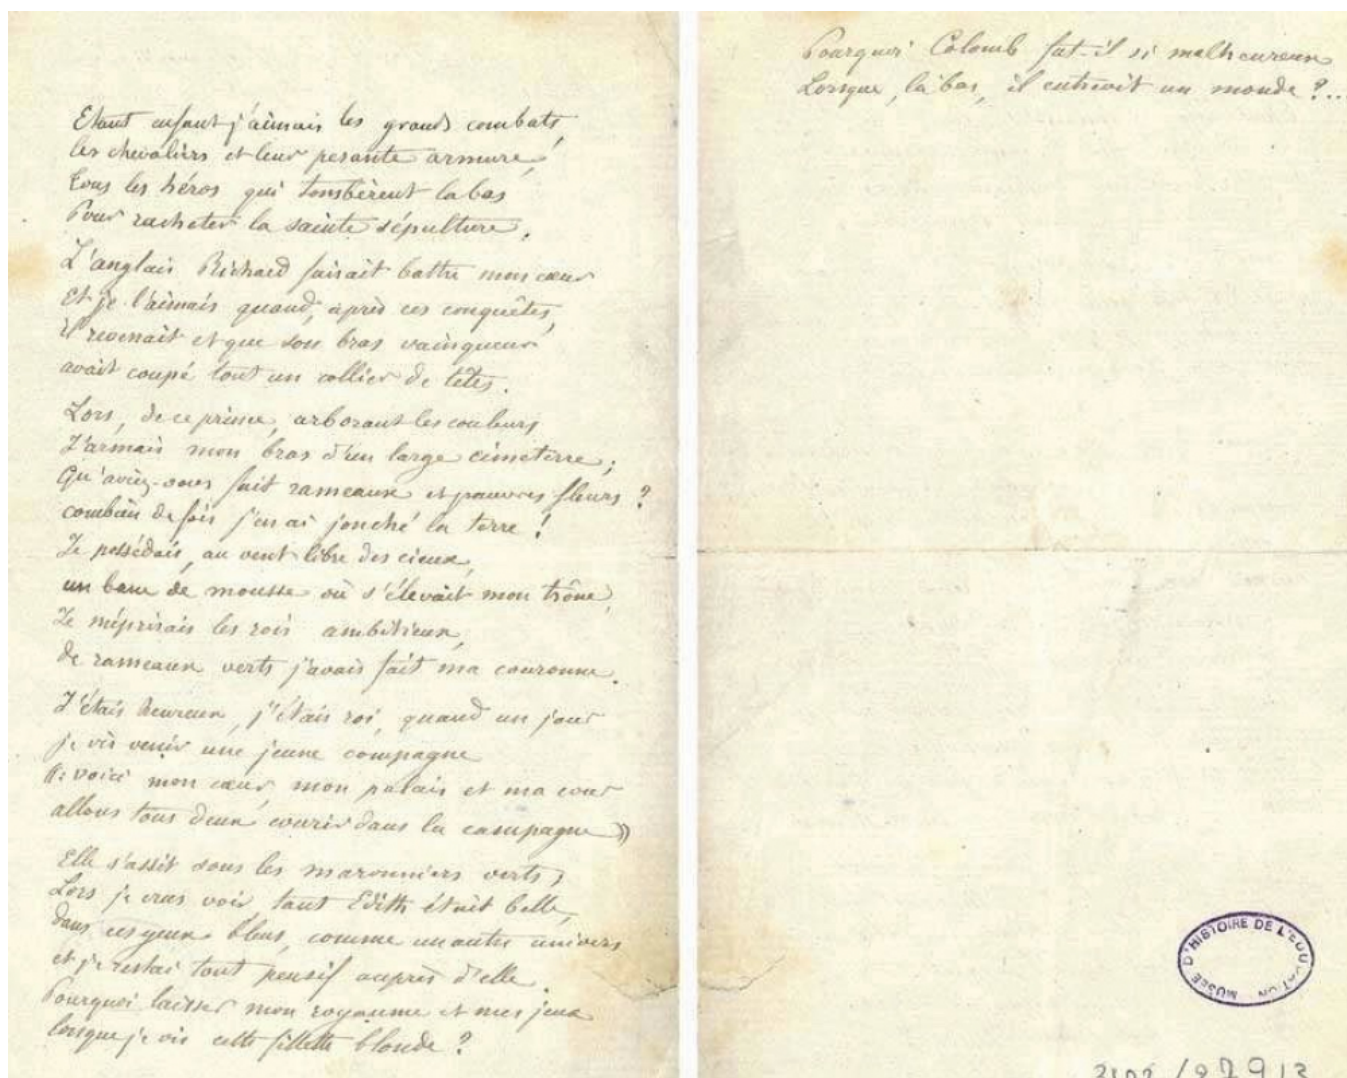 Etant enfant j'aimais les grands combats,
les chevaliers et leur pesante armure,
tous les héros qui tombèrent la bas
Pour racheter la sainte sépulture.
L'anglais Richard faisait battre mon cœur
Et je l'aimais quand, après ces conquêtes,
il revenait et que son bras vainqueur
avait coupé tout un collier de têtes.
Lors, de ce prince, arborant les couleurs
J'armais mon bras d'un large cimeterre ;
Qu'aviez-vous fait rameaux et pauvres fleurs ?
combien de fois j'en ai jonché la terre !
Je possédais, au vent libre des cieux,
un banc de mousse où s'élevait mon trône,
Je méprisais les rois ambitieux,
de rameaux verts j'avais fait ma couronne.
J'étais heureux, j'étais roi, quand un jour
je vis venir une jeune compagne
voici mon cœur, mon palais et ma cour
allons tous deux courir dans la campagne »
Elle s'assit sous les maronniers verts,
Lors je crus voir, tant Edith était belle,
dans ces yeux bleus, comme un autre univers
et je restai tout pensif auprès d'elle.
Pourquoi laisser mon royaume et mes jeux
lorsque je vis cette fillette blonde ?
Pourquoi Colomb fut-il si malheureux
Lorsque, là bas, il entrevit un monde ?...
MUSÉE D'HISTOIRE DE L'EDUCATION